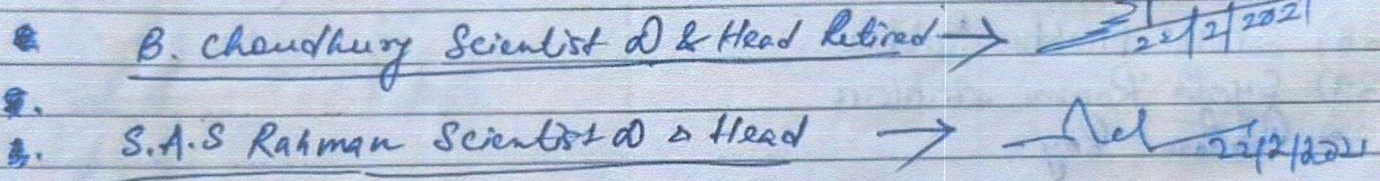 B. Choudhury Scientist D & Head Retired → 22/2/2021
3. S.A.S Rahman Scientist D & Head → 22/2/2021